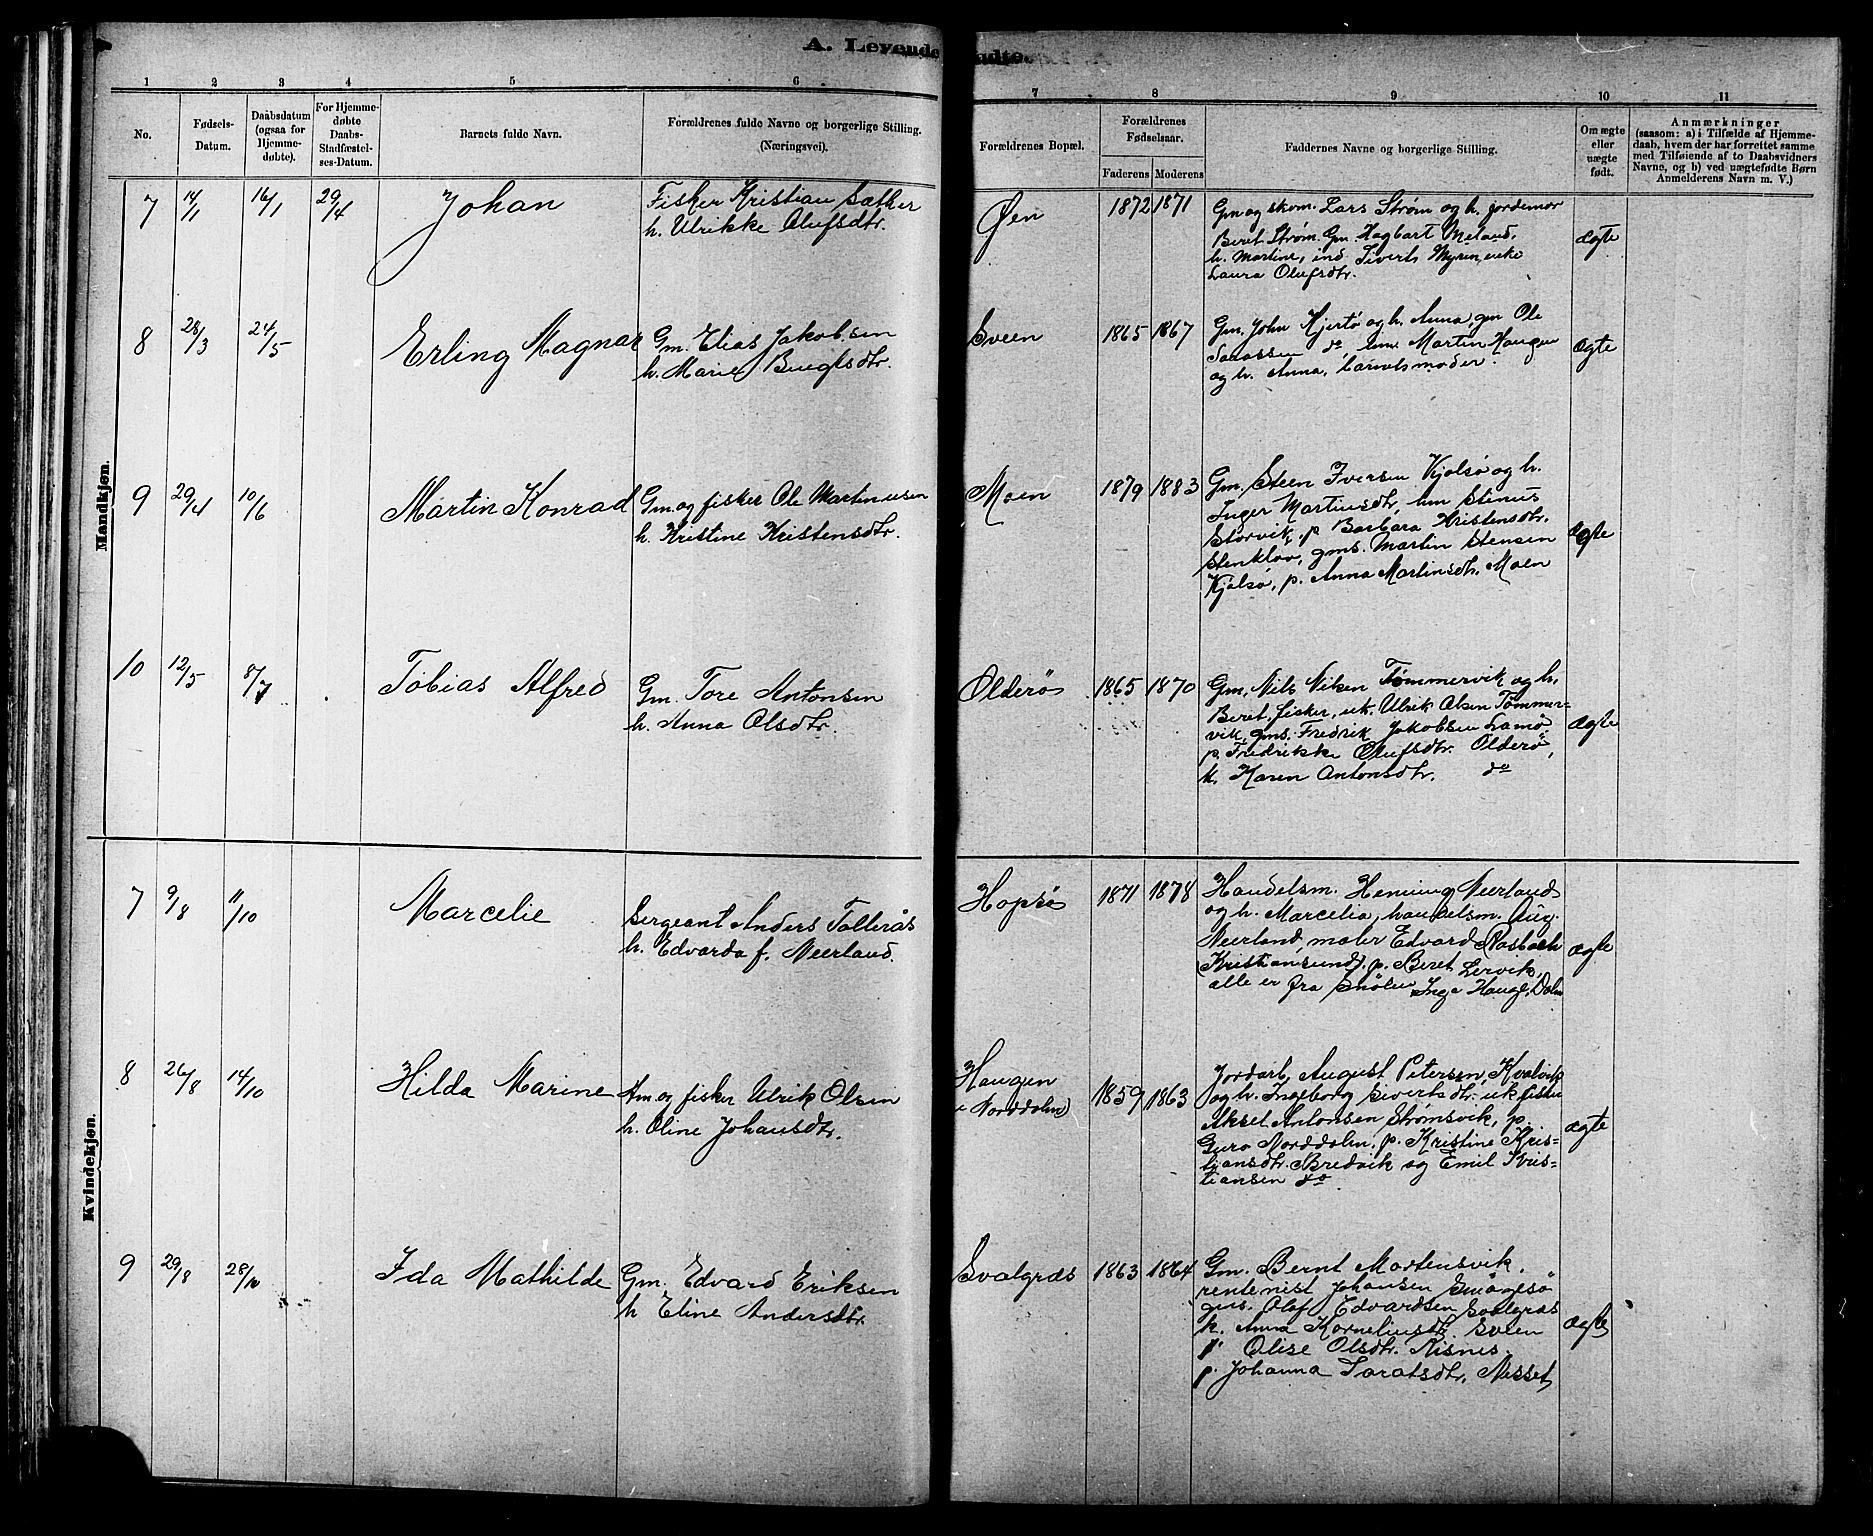 A. Levende
fødte.
1 2 3 4 5 6 7 8 9 10 11
No.
Fødsels-
Datum.
Daabsdatum
(ogsaa for
Hjemme-
døbte).
For Hjemme-
døbte
Daabs-
Stadfæstel-
ses-Datum.
Barnets fulde Navn.
Forældrenes fulde Navne og borgerlige Stilling.
(Næringsvei).
Forældrenes Bopæl.
Forældrenes
Fødselsaar.
Faderens Moderens
Faddernes Navne og borgerlige Stilling.
Om ægte
eller
uægte
født.
Anmærkninger
(saasom: a) i Tilfælde af Hjemme-
daab, hvem der har forrettet samme
med Tilføiende af to Daabsvidners
Navne, og b) ved uægtefødte Børn
Anmelderens Navn m. V.)
Mandkjøn.
7 14/1 16/1 29/4 Johan
Fisker Kristian Sæther
h. Ulrikke Olufsdtr.
Øen 1872 1871
Gm og skom. Lars Strøm og h. jordemor
Beret Strøm. Gm. Hagbart Meland,
h. Martine, ind. Siverts Myren, enke
Laura Olufsdtr.
ægte
8 28/3 24/5 Erling Magnar
Gm. Elias Jakobsen
h. Marie Bengtsdtr.
Sveen 1865 1867
Gm. John Hjertø og h. Anna, gm Ole
do Martin Haugen
og h. Anna, barnets moder.
ægte
9 29/4 10/6 Martin Konrad
Gm og fisker Ole Martinusen
h. Kristine Kristensdtr.
Moen 1879 1883
Gm. Steen Iversen Kjølsø og h.
Inger Martinsdtr, Stenus
Storvik, p. Barbara Kristensdtr.
gms. Martin Stensen
Kjølsø, p. Anna Martinsdtr. Moen
ægte
10 12/5 8/7 Tobias Alfred
Gm. Tore Antonsen
h. Anna Olsdtr.
Olderø 1865 1870
Gm. Nils Nilsen Tømmervik og h.
Beret, fisker, uk. Ulrik Olsen Tømmer-
vik, gms. Fredrik Jakobsen Lamø
p. Fredrikke Olufsdtr. Olderø,
k. Karen Antonsdtr. do
ægte
Kvindekjøn.
7 9/8 11/10 Marcelie
Sergeant Anders Tallerås
h. Edvarda f. Neerland.
Hopsø 1871 1878
Handelsm. Henning Neerland
og h. Marcelia, handelsm. Aug.
Neerland, maler Edvard Rosbach
(Kristiansund). p. Beret Lervik,
alle er fra Smølen Inga Hauge, Dolm
ægte
8 26/8 14/10 Hilda Marine
Gm og fisker Ulrik Olsen
h. Oline Johansdtr.
Haugen
i Norddolm) 1859 1863
Jordarb. August Petersen, Kvalvik
og h. Ingeborg Sivertsdtr. uk fisker
Aksel Antonsen Strømsvik, p.
Guro Norddolm, p. Kristine Kris-
tiansdtr. Bredvik og Emil Kris-
tiansen do
ægte
9 29/8 28/10 Ida Mathilde
Gm. Edvard Eriksen
h Eline Andersdtr.
Svalgræs 1863 1864
Gm. Bernt Mortensvik.
rentenist Johansen Smøgesø
gms. Olaf Edvardsen Svalgræs
k. Anna Korneliusdtr. Sveen
p. Olise Olsdtr. Risnes.
p. Johanna Taraldsdtr. Nesset
ægte